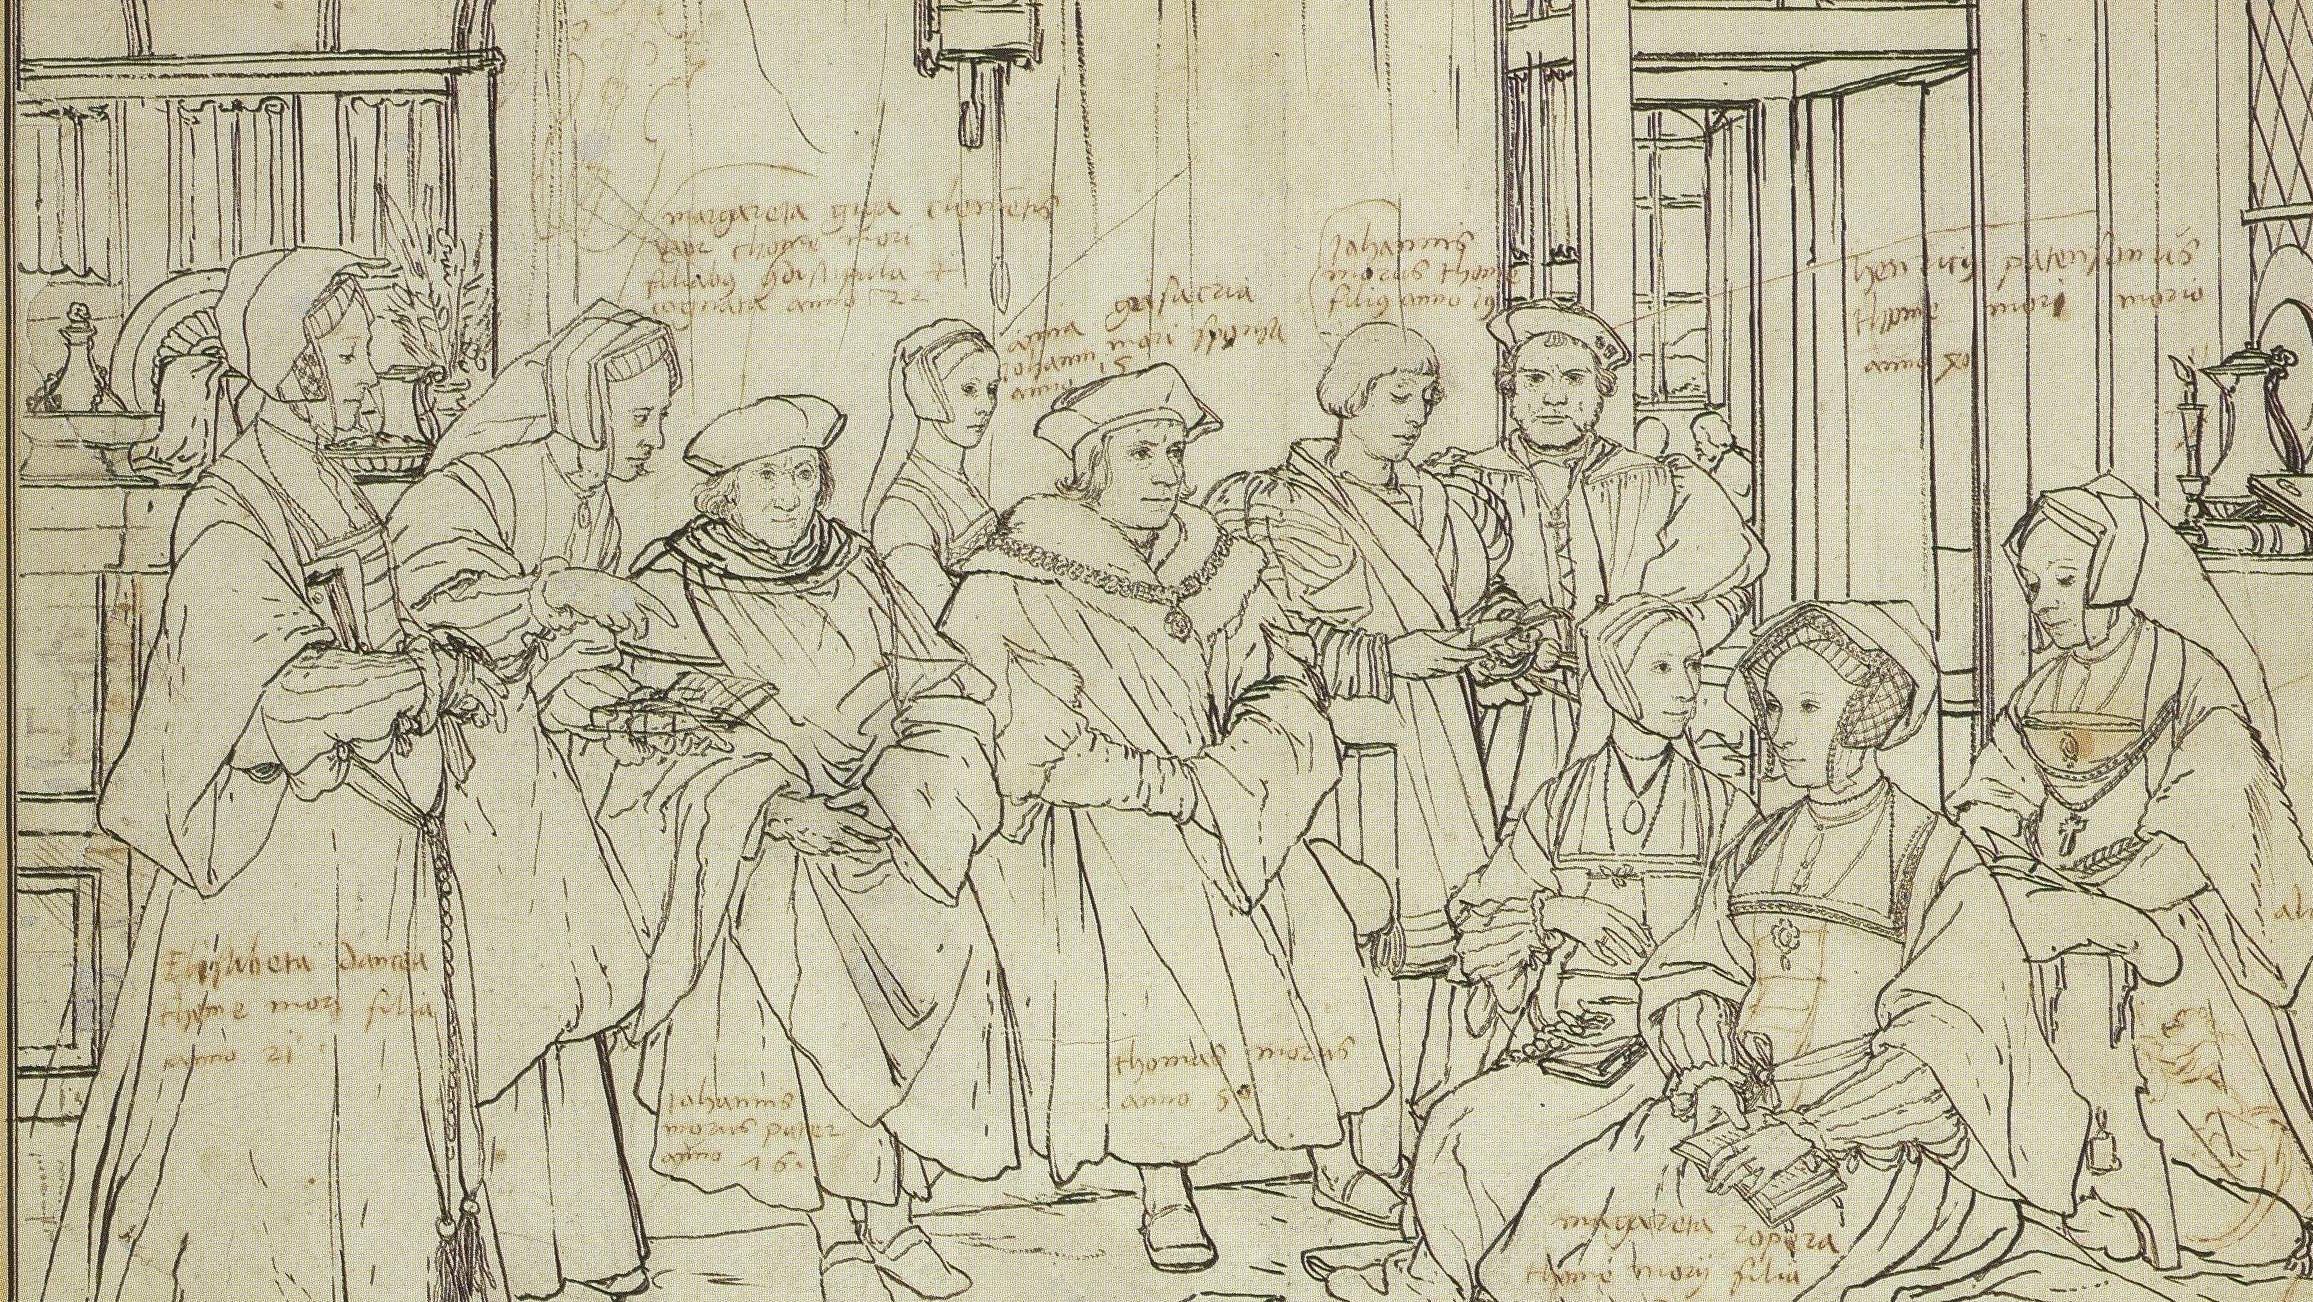 margareta giga clemetis
uxor thome mori
filiabus &
cognata anno 22
grisacria
anna
johannis mori sponsa
anno 15
Johannes
morus thome
filius anno 19
henricus patensonus
thome mori morio
anno 40
Elizabeta dancea
thome mori filia
anno 21
Johannes
morus pater
anno 76
thomas morus
anno 50
margareta ropera
thome mori filia